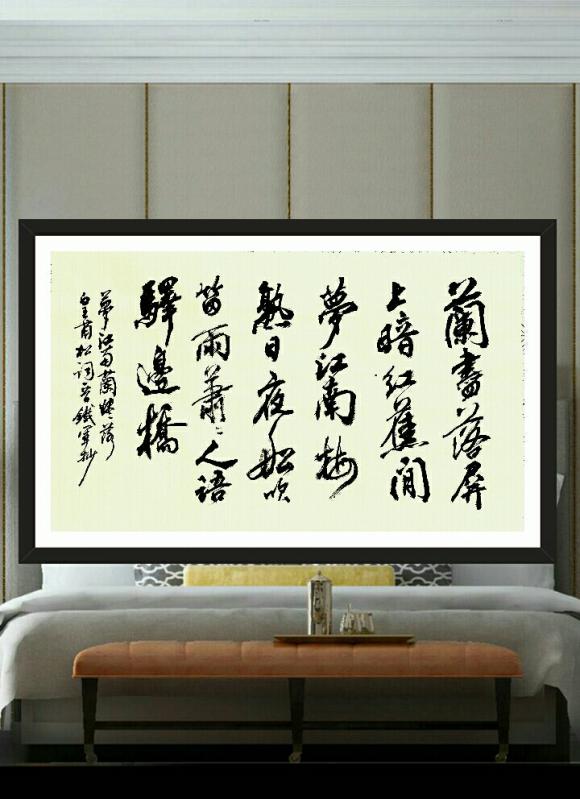 蘭燼落屏
上暗红蕉閒
夢江南梅
熟日夜船吹
笛雨蕭〻人語
驛邊橋
夢江南蘭燼落
皇甫松詞鐵軍抄